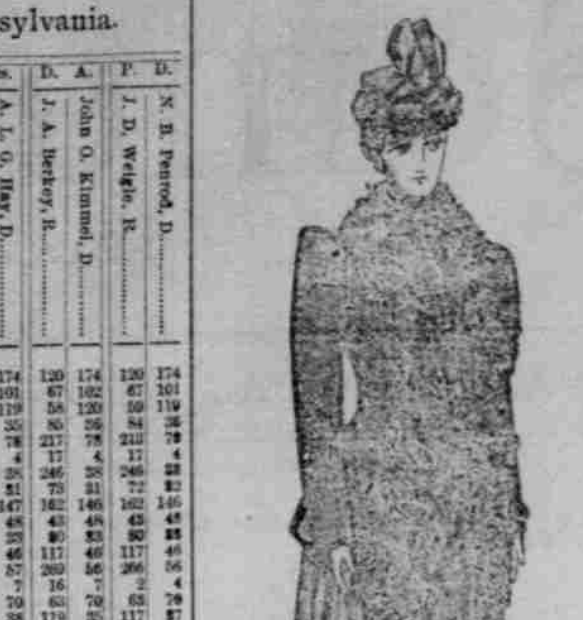 sylvania.
s. D. A. P. D.
A. L. G. Hay, D.
J. A. Berkey, R.
John O. Kimmel, D.
J. D. Weigle, R.
N. B. Penrod, D.
174 120 174 120 174
101 67 102 67 101
119 58 120 59 119
35 85 36 84
78 217 78 218 78
4 17 4 17 4
38 246 38 246
31 73 31 72
147 162 146 162 146
48 43 48 43 48
46 117 46 117 46
57 56 266 56
7 16 7 2 4
70 63 70 63 70
117